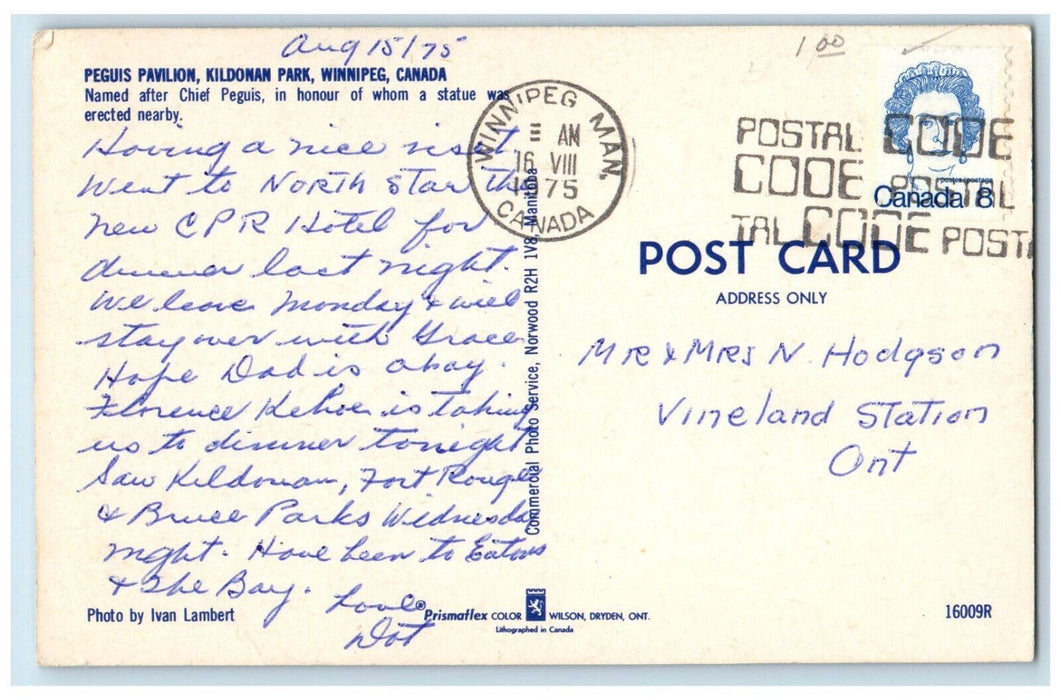 Aug 15/75
PEGUIS PAVILION, KILDONAN PARK, WINNIPEG, CANADA
Named after Chief Peguis, in honour of whom a statue was
erected nearby.
Having a nice visit.
Went to NORTH Star the
new CPR Hotel for
dinner last night.
We leave Monday & will
stay over with Grace
Hope Dad is okay.
Florence Kehoe is taking
us to dinner tonight
Saw Kildonan, Fort Rouge
& Bruce Parks Wednesday
night. Have been to Eatons
& The Bay.
Love
Dot
Photo by Ivan Lambert
Commercial Photo Service, Norwood R2H 1V8, Manitoba
®Prismaflex COLOR WILSON, DRYDEN, ONT.
Lithographed in Canada
WINNIPEG MAN.
AM
16 VIII
1975
CANADA
1 00
POSTAL CODE
CODE POSTAL
TAL CODE POSTA
postes postage
Canada 8
POST CARD
ADDRESS ONLY
MR & MRS N. Hodgson
Vineland Station
Ont
16009R